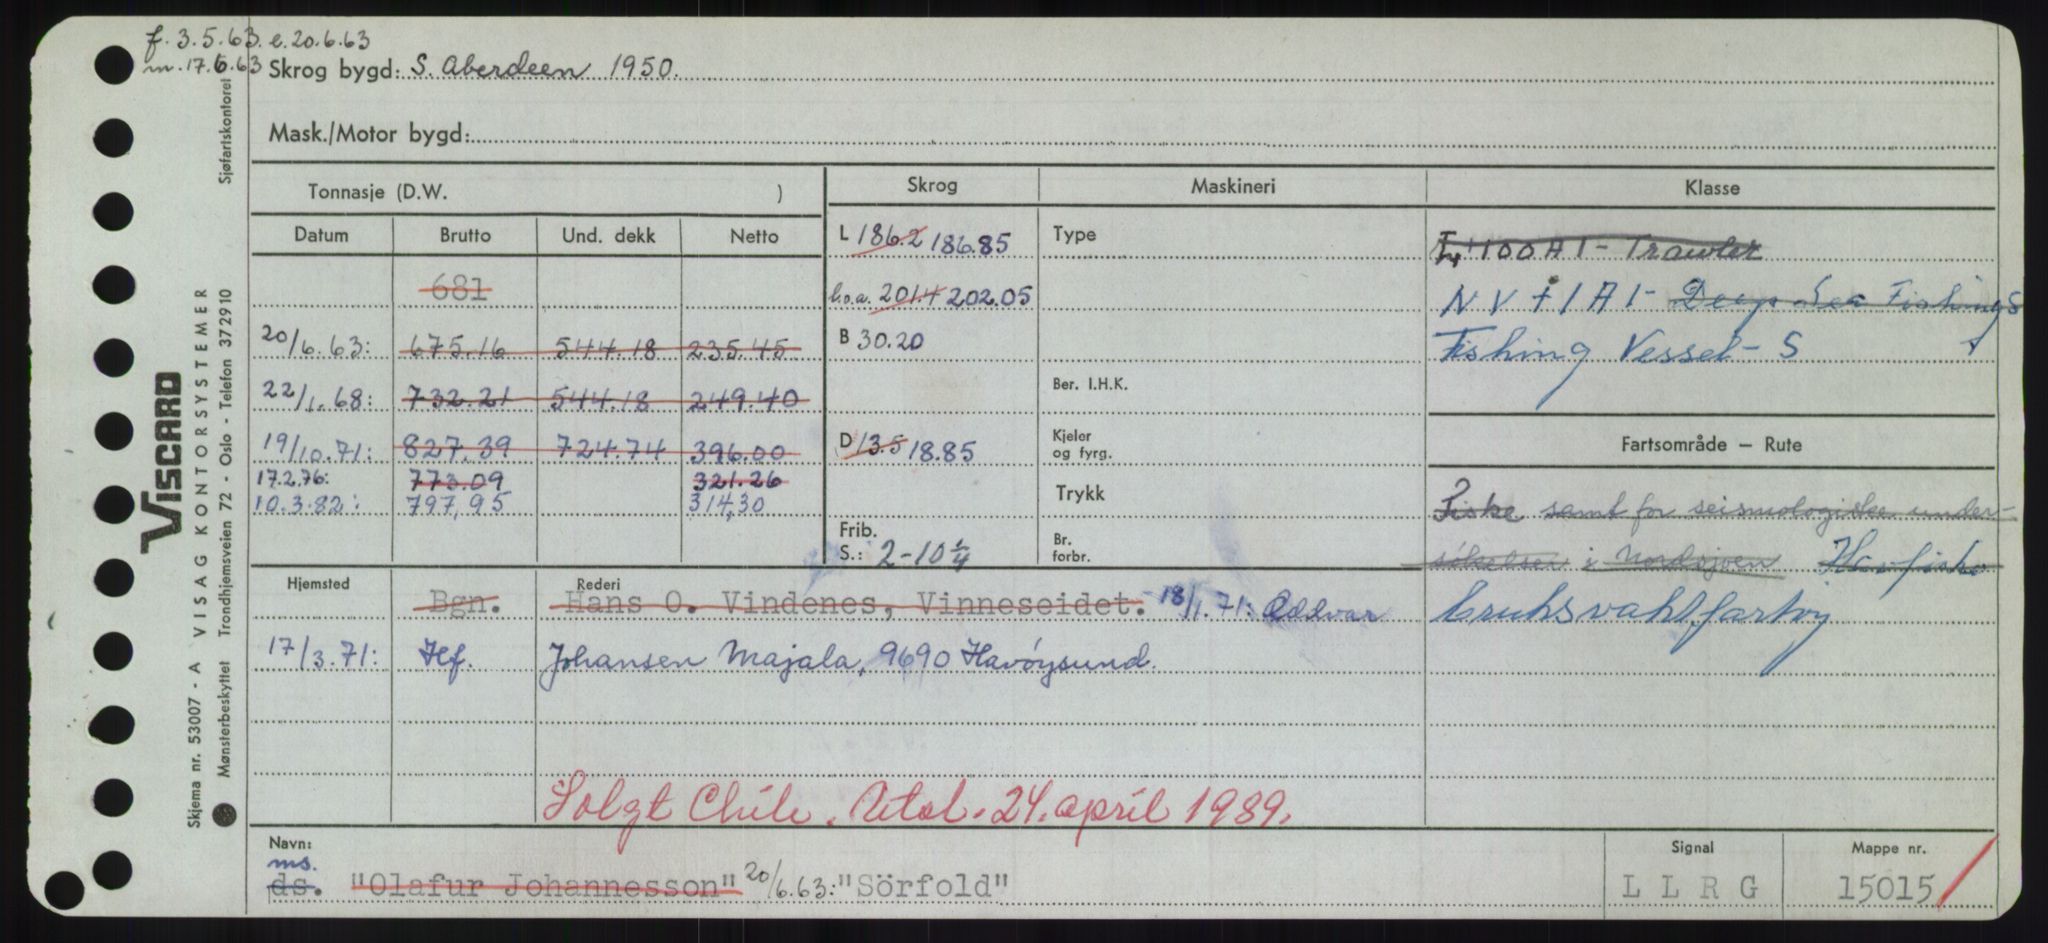 f. 3.5.63. e. 20.6.63
m. 17.6.63 Skrog bygd: S. Aberdeen 1950.
Mask./Motor bygd:
Tonnasje (D.W. )
Skrog
Maskineri
Klasse
Datum Brutto Und. dekk Netto
L 186.2 186.85
Type
100 A 1 - Trawler
681
l.o.a. 201.4 202.05
N V + 1 A 1 - Deep Sea Fishing S
20/6.63: 675.16 544.18 235.45
B 30.20
Fishing Vessel - S
22/1.68: 732.21 544.18 249.40
Ber. I.H.K.
19/10.71: 827.39 724.74 396.00
D 13.5 18.85
Kjeler
og fyrg.
Fartsområde — Rute
17.2.76: 773.09 321.26
10.3.82: 797,95 314,30
Trykk
Fiske samt for seismologiske under-
Frib.
S.: 2-10 1/4
Br.
forbr.
søkelser i Nordsjøen Havfiske
Hjemsted
Rederi
Bgn. Hans O. Vindenes, Vinneseidet. 18/1.71: Oddvar
17/3.71: Hf. Johansen Majala, 9690 Havöysund.
Solgt Chile. 24. april 1989.
Navn:
ms.
ds. "Olafur Johannesson" 20/6.63: "Sörfold"
Signal
L L R G
Mappe nr.
15015
Skjema nr. 53007 - A VISAG KONTORSYSTEMER
VISCARD
Mønsterbeskyttet Trondhjemsveien 72 - Oslo - Telefon 372910 Sjøfartskontoret